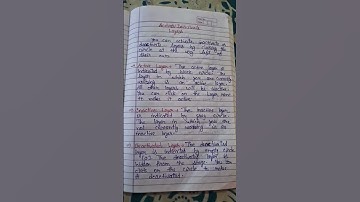 Active/Inactive
Layers
You can activate, inactivate or
deactivate layers by clicking the
circle at the left of
their name.
Active Layer :- The active layer is
indicated by black circle. The
layer in which you are currently
working is an active layer.
All other layers will be inactive.
You can click on the layer name
to make it active.
Inactive Layer :- The inactive layer
is indicated by grey circle.
The layer in which you are
not currently working is an
inactive layer.
Deactivated Layer :- The deactivated
layer is indicated by empty circle
"(0)". The deactivated layer is
hidden from the stage. You can
click on the circle to make
it deactivated.